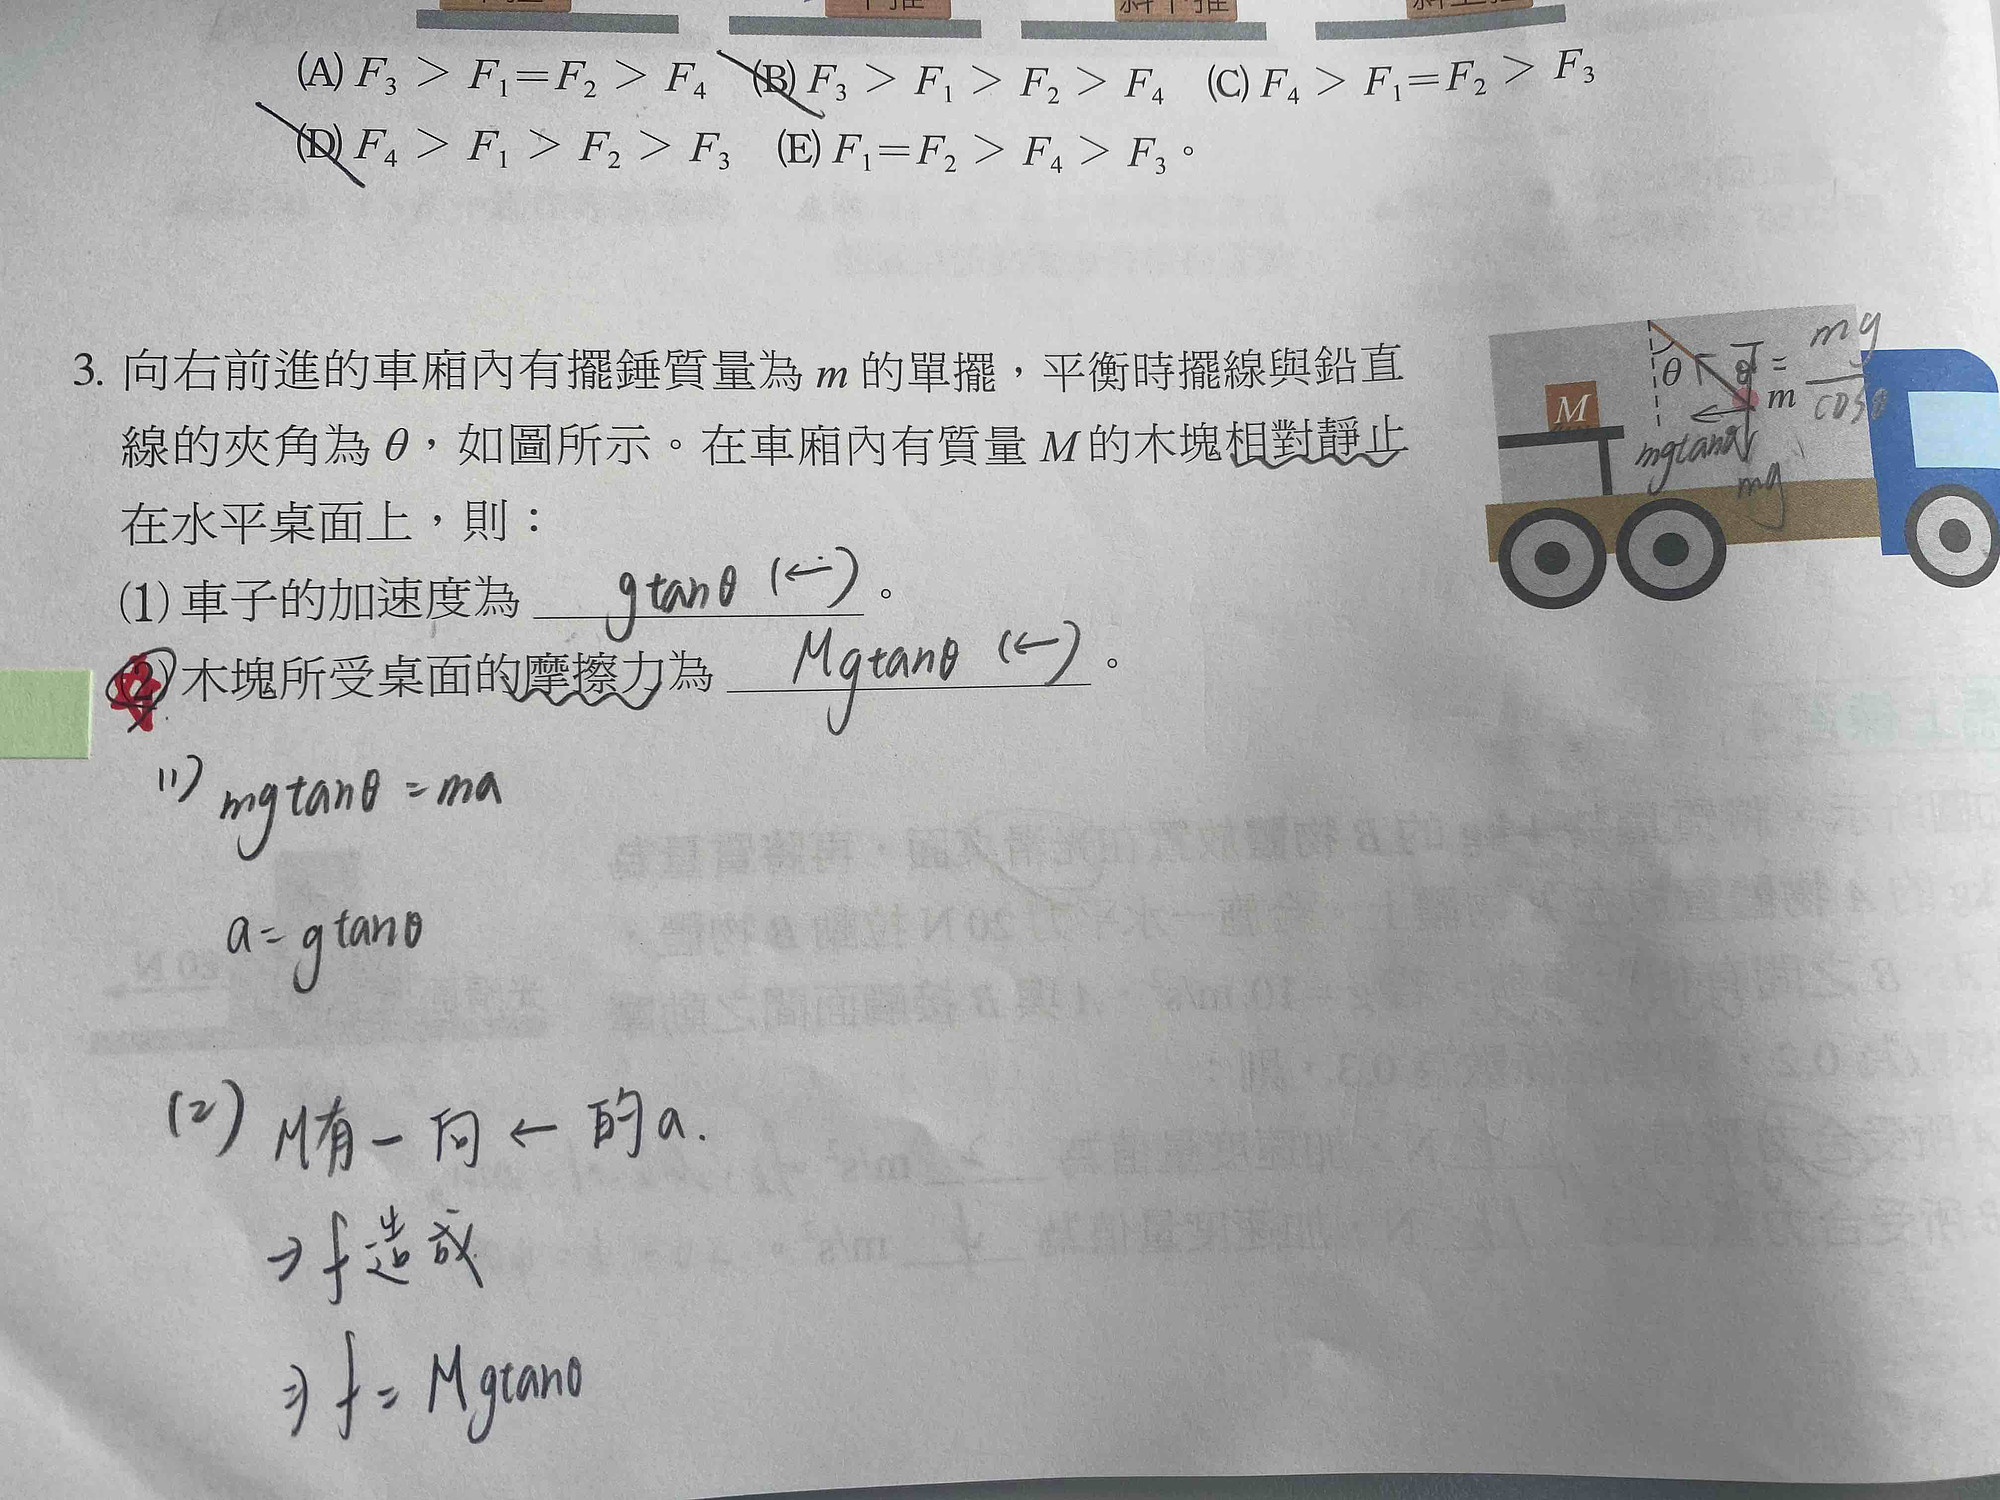 (A) F₃ > F₁=F₂ > F₄ (B) F₃ > F₁ > F₂ > F₄ (C) F₄ > F₁=F₂ > F₃
(D) F₄ > F₁ > F₂ > F₃ (E) F₁=F₂ > F₄ > F₃。
3. 向右前進的車廂內有擺錘質量為 m 的單擺，平衡時擺線與鉛直
線的夾角為 θ，如圖所示。在車廂內有質量 M 的木塊相對靜止
在水平桌面上，則：
(1) 車子的加速度為 gtanθ (←)。
(2) 木塊所受桌面的摩擦力為 Mgtanθ (←)。
M
θ
m
mg
cosθ
=
mgtanθ
mg
(1) mgtanθ = ma
a = gtanθ
(2) M有一向 ← 的a.
→ f造成
⇒ f = Mgtanθ